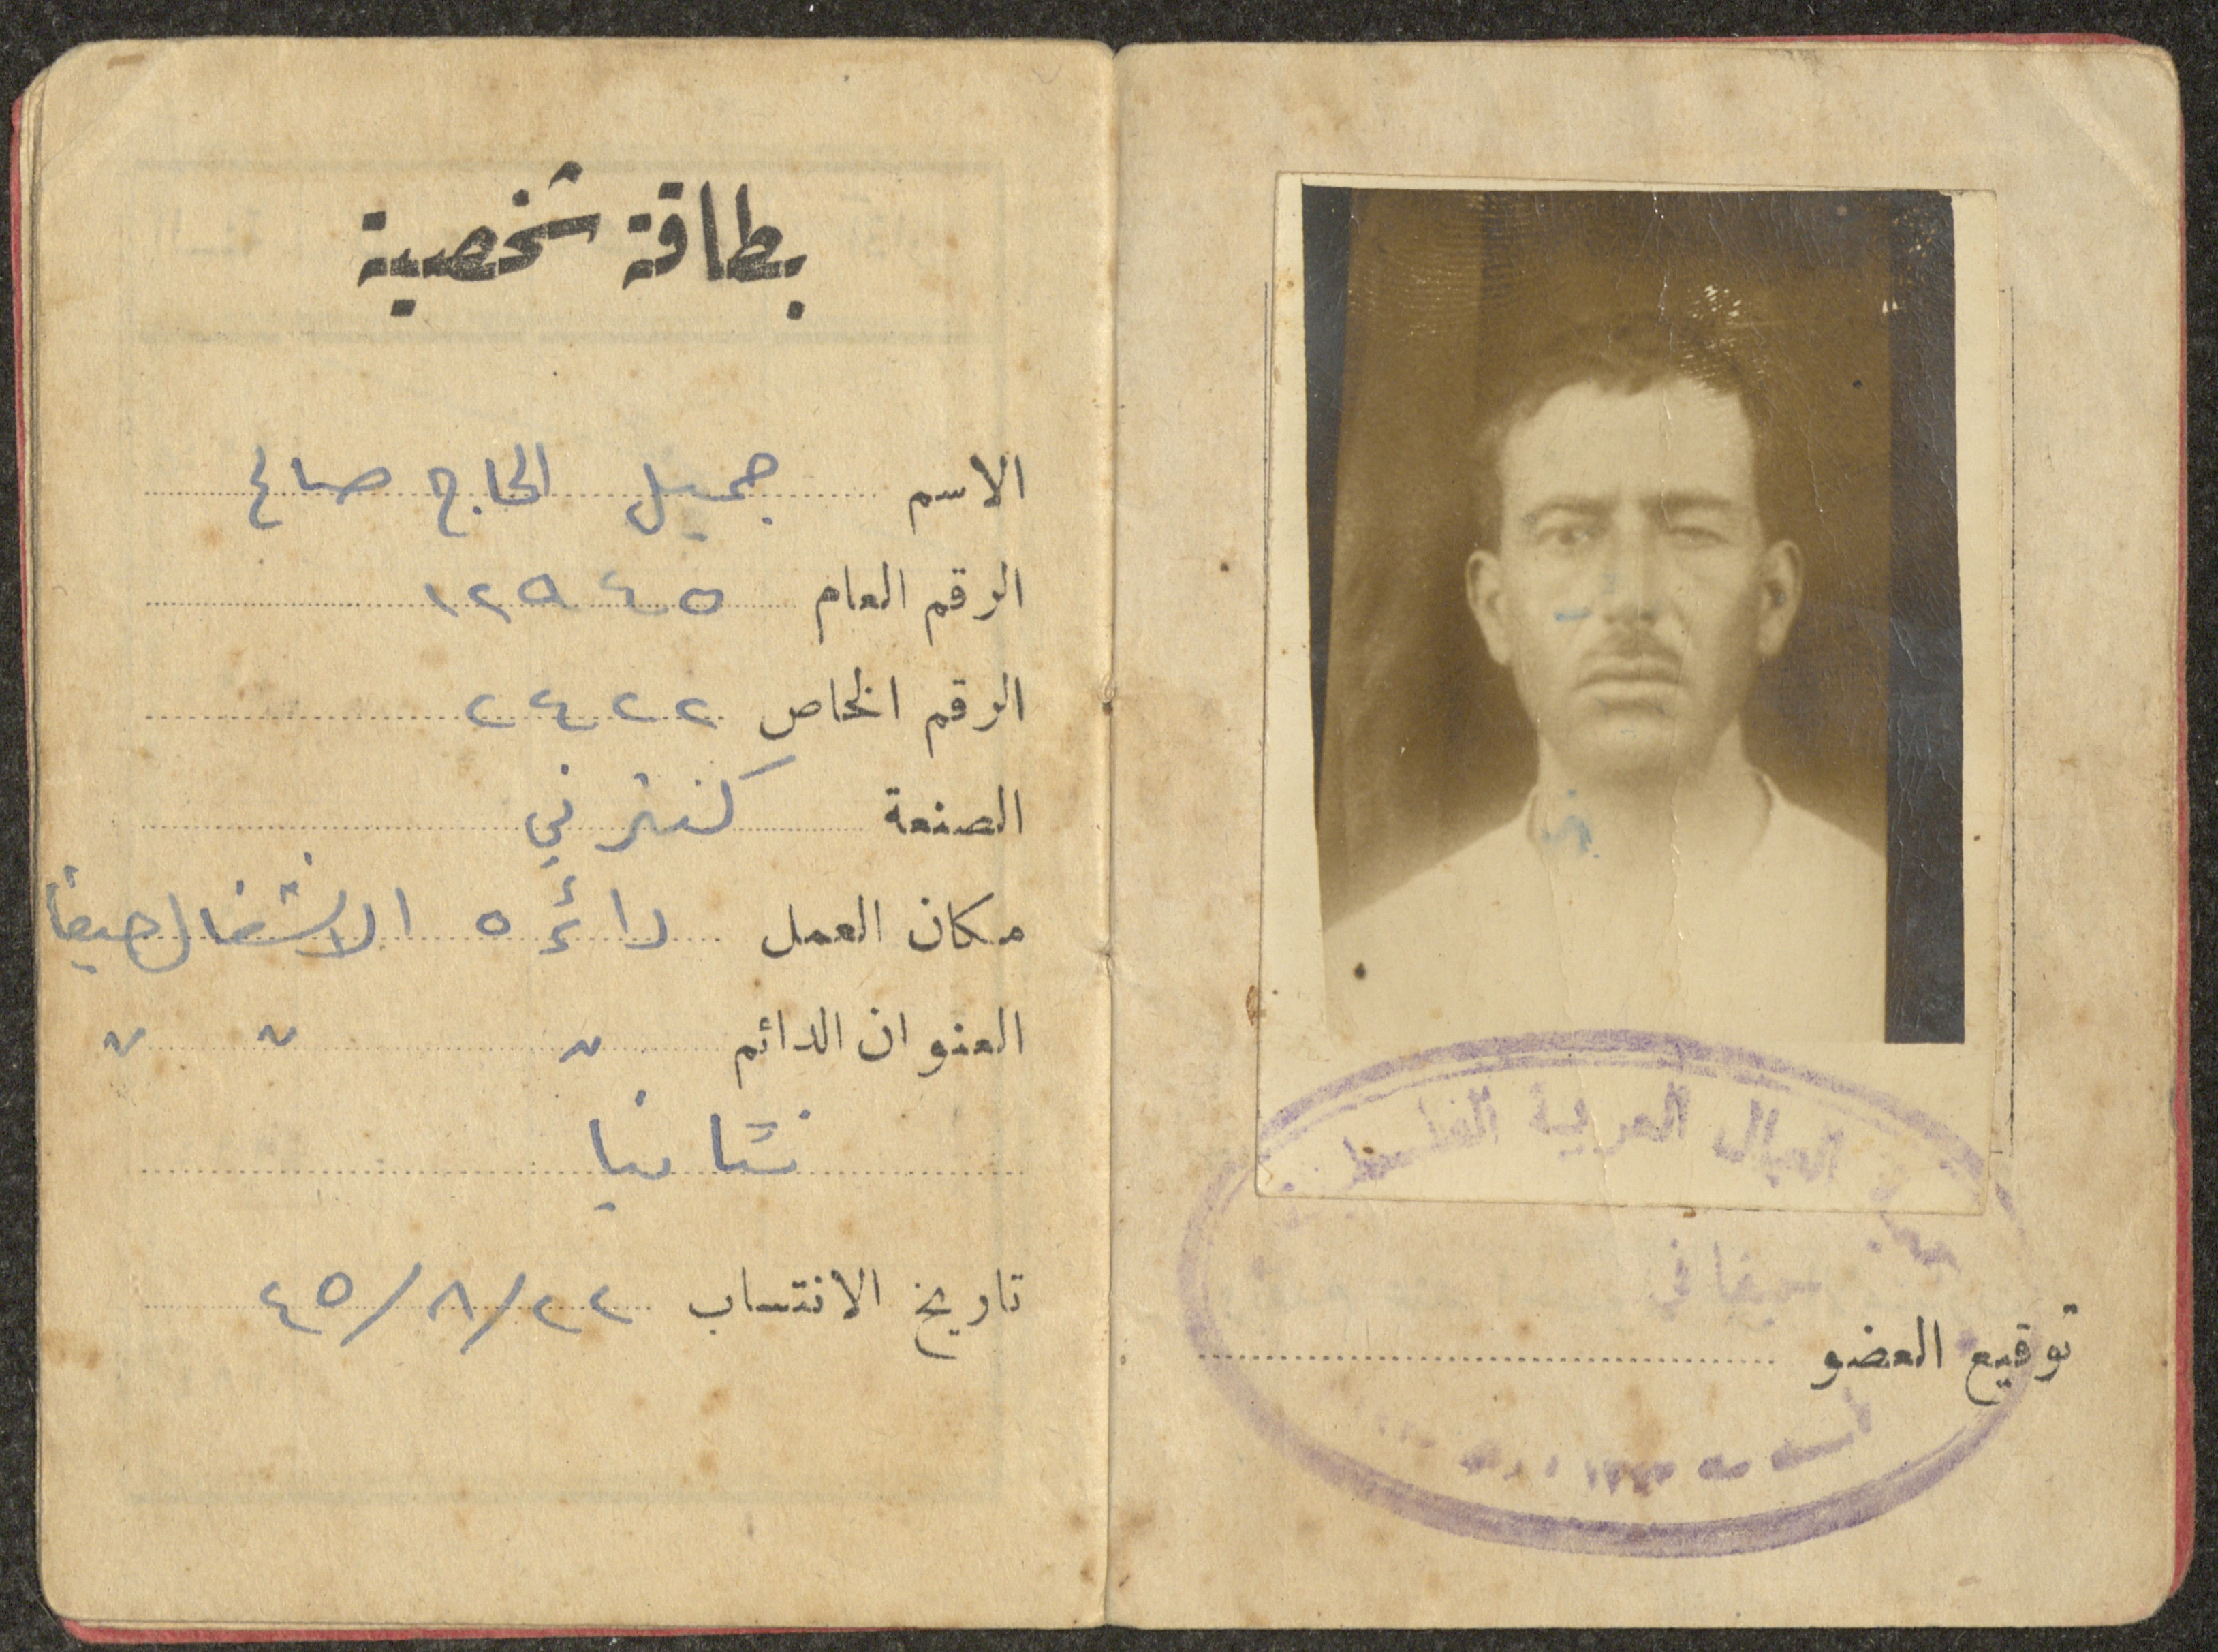 بطاقة شخصية
الاسم جميل الحاج صالح
الرقم العام ١٢٩٤٥
الرقم الخاص ٢٤٢٢
الصنعة كنترني
مكان العمل دائره الاشغال حيفا
العنوان الدائم " " "
تاريخ الانتساب ٢٢/٨/٤٥
العمال العربية الفلسطينية
حيفا
توقيع العضو